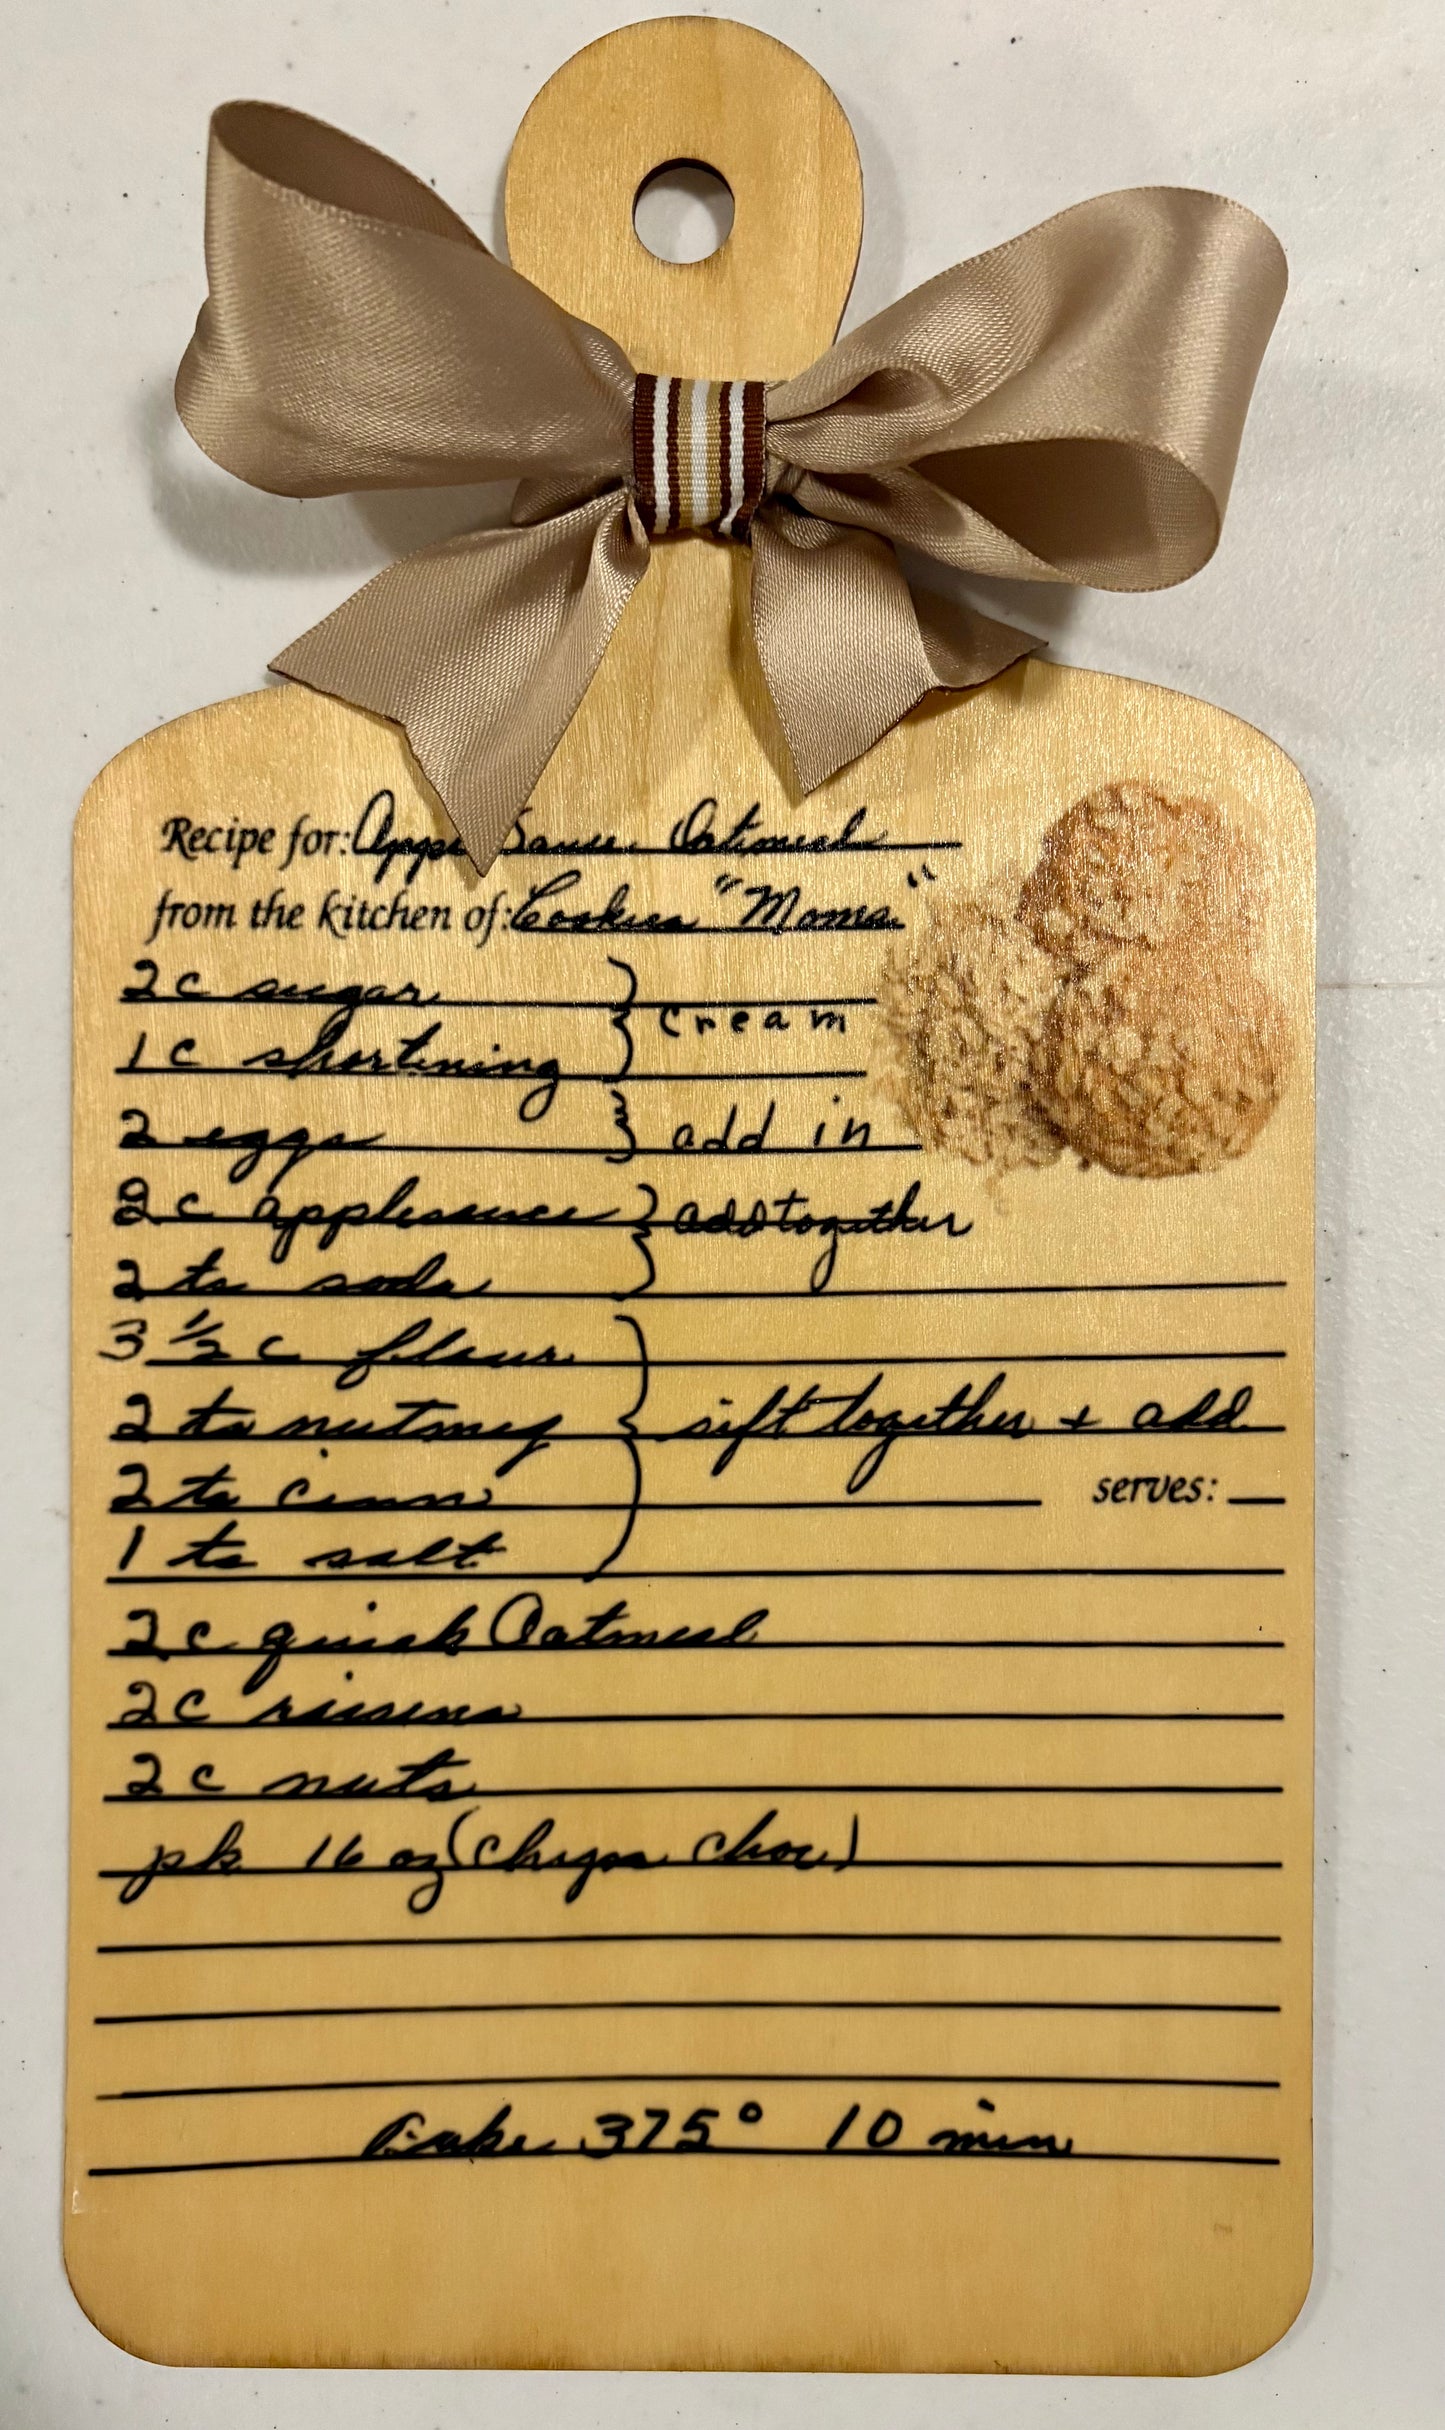 Recipe for: Apple Sauce Oatmeal
from the kitchen of: Cookies "Moms"
2 c sugar } cream
1 c shortening
2 eggs } add in
2 c applesauce } add together
2 ts soda
3 1/2 c flour
2 ts nutmeg } sift together + add
2 ts cinn
serves:
1 ts salt
2 c quick Oatmeal
2 c raisens
2 c nuts
pk 16 oz (chips choc)
Bake 375° 10 min